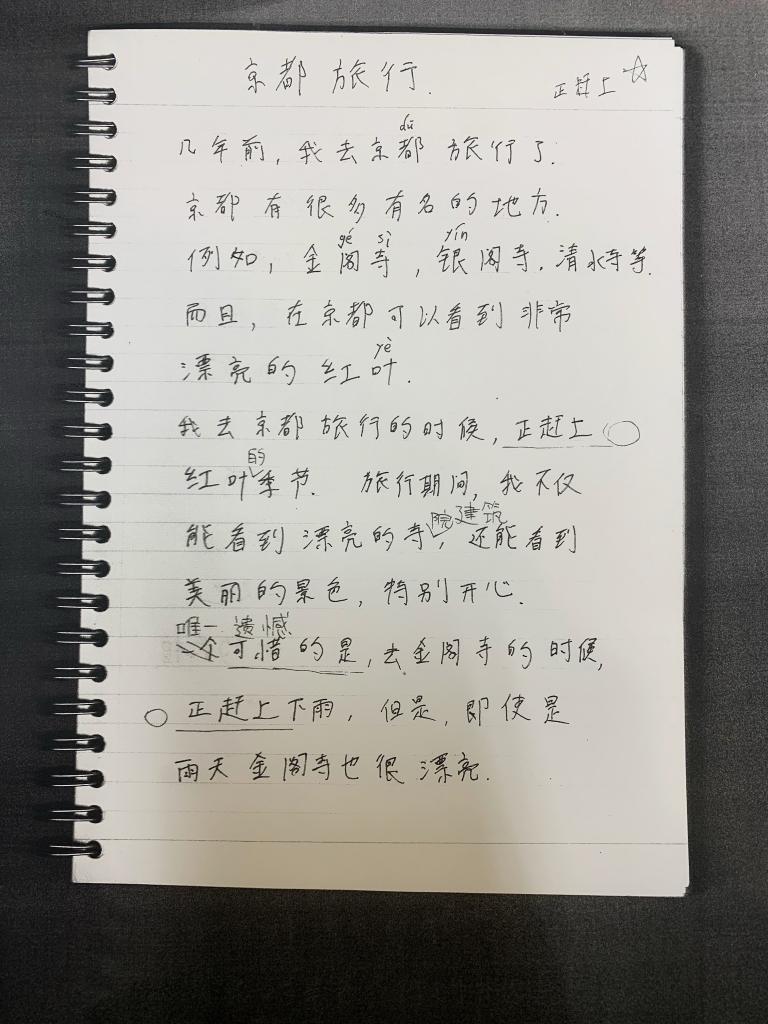 京都 旅行.
正赶上 ☆
dū
几年前, 我去京都 旅行了.
京都 有 很多有名的地方.
gé sì yín
例如, 金阁寺, 银阁寺. 清水寺等.
而且, 在京都可以看到 非常
yè
漂亮的 红叶.
我去 京都 旅行的时候, 正赶上
的
红叶季节. 旅行期间, 我不仅
院建筑
能看到 漂亮的寺, 还能看到
美丽的景色, 特别开心.
唯一 遗憾
一个可惜的是, 去金阁寺的时候,
正赶上下雨, 但是, 即使是
雨天 金阁寺也很 漂亮.